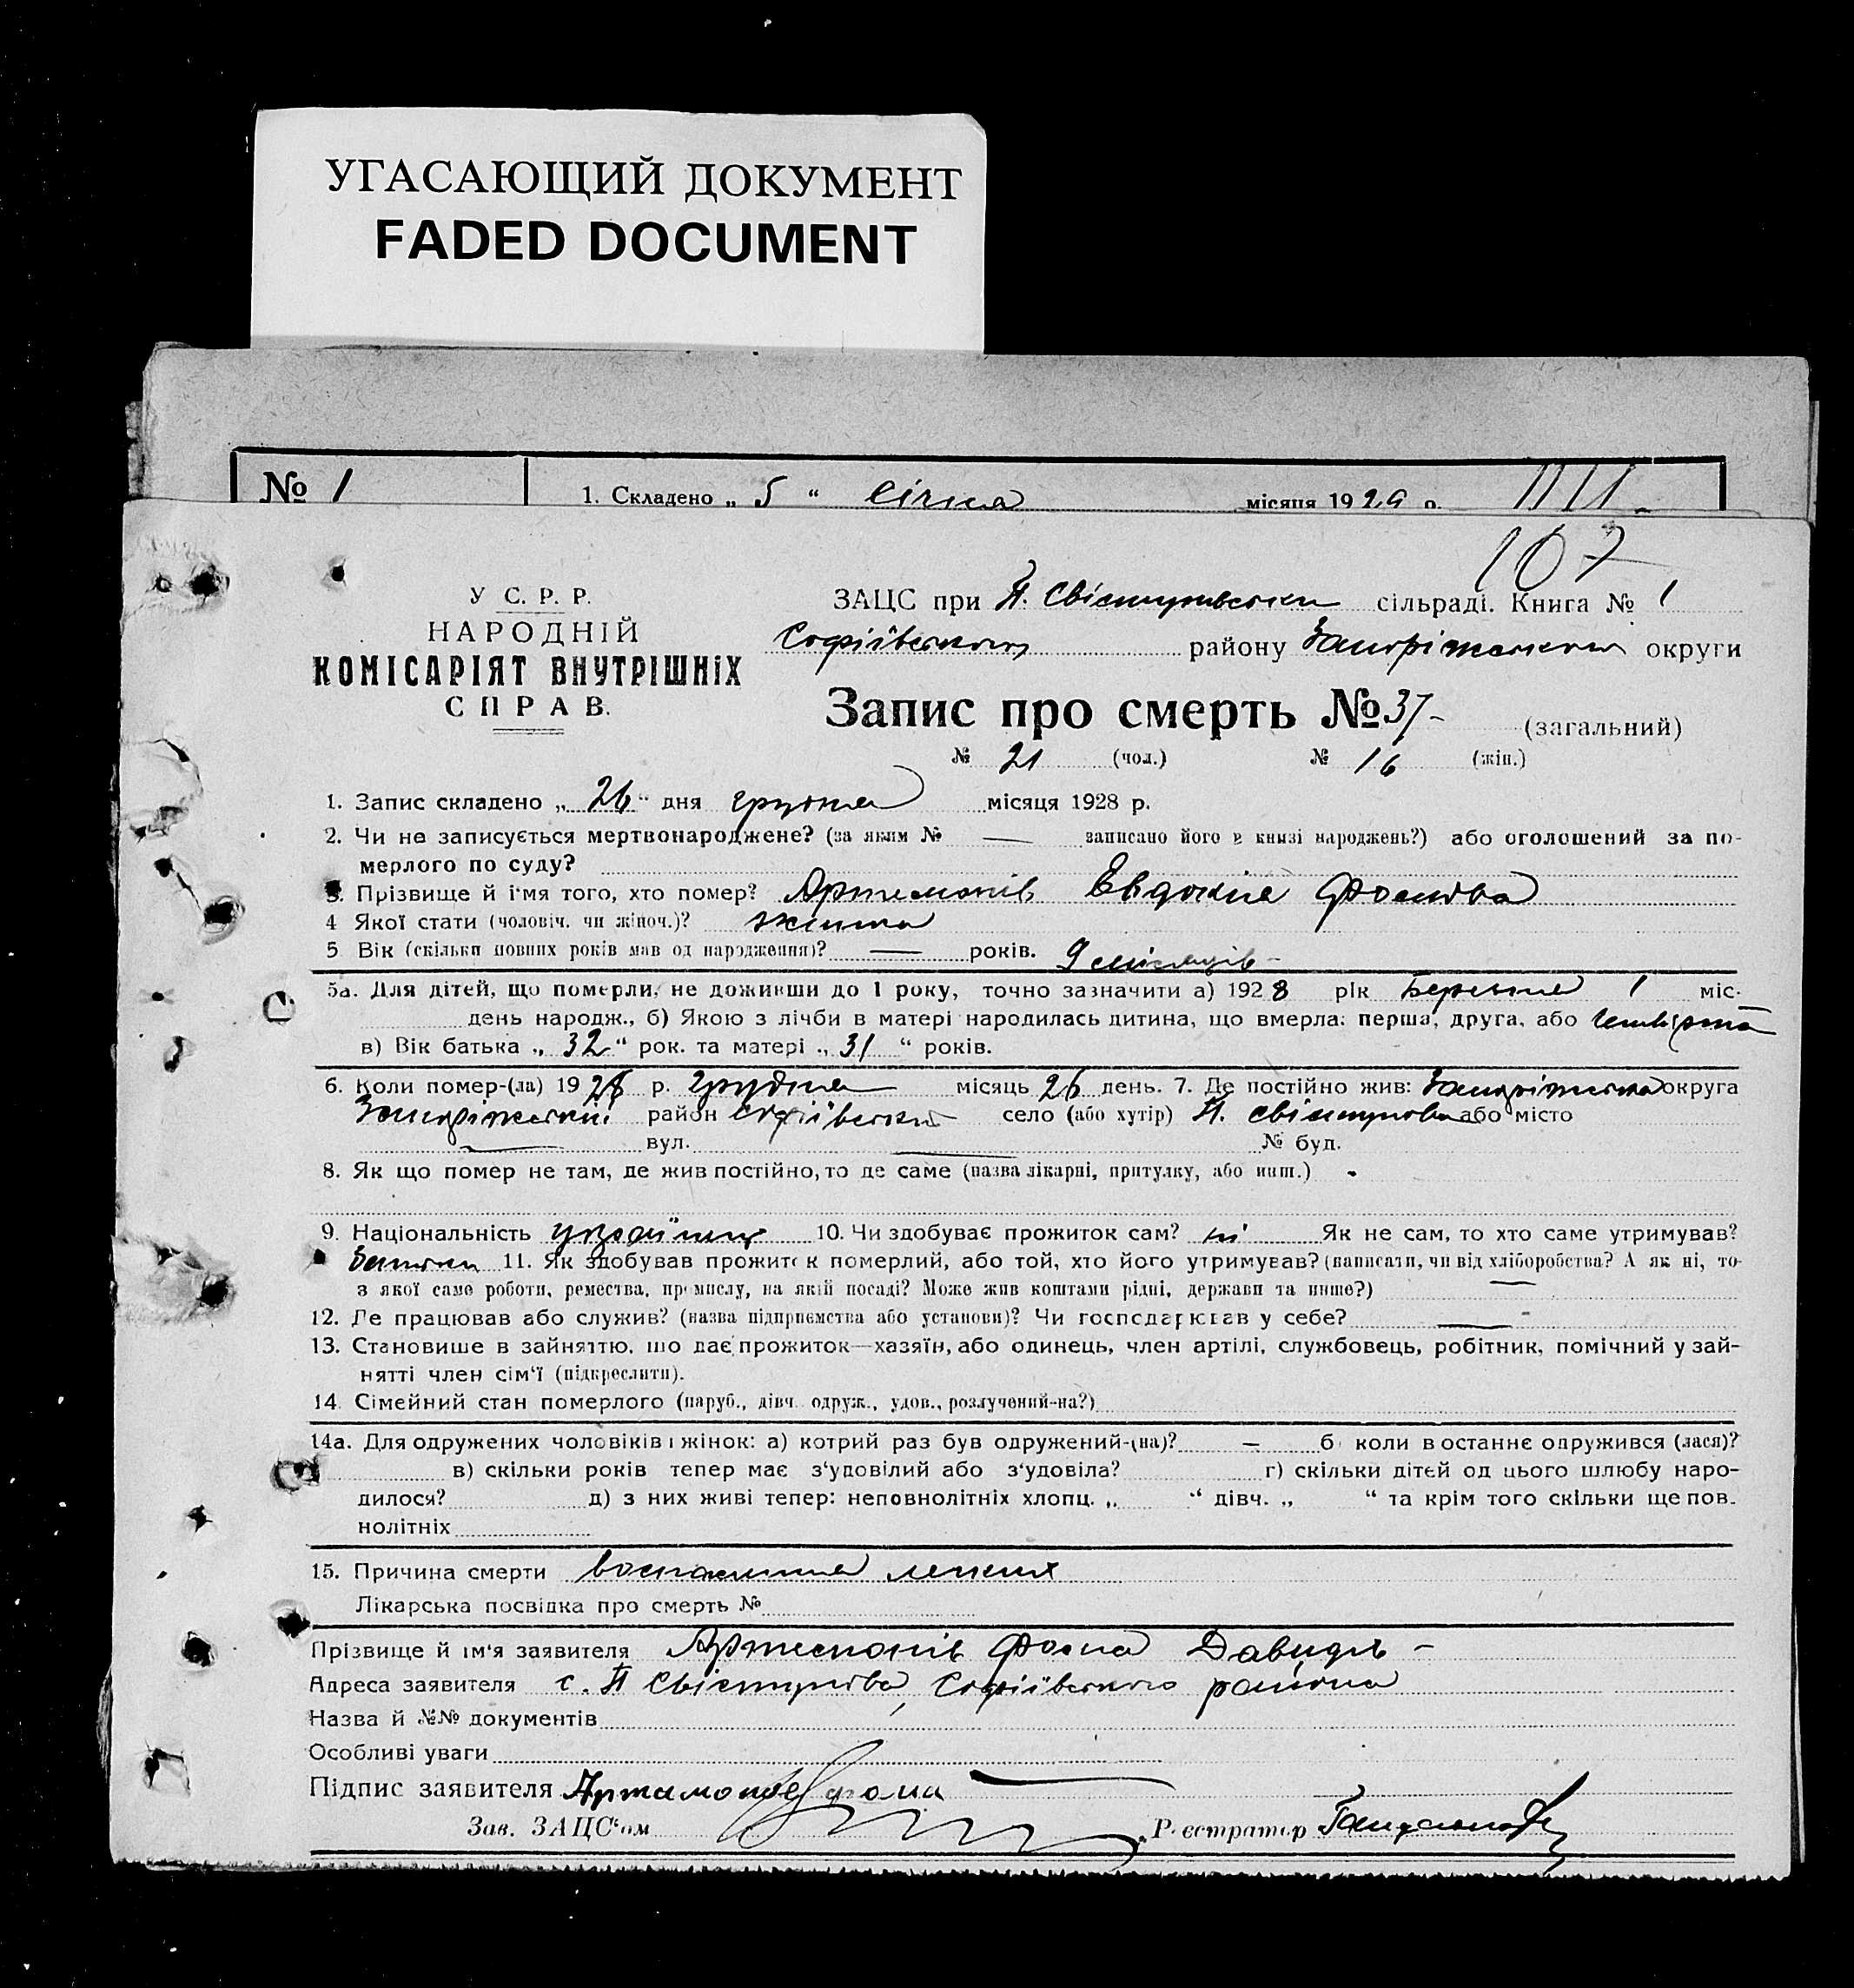 УГАСАЮЩИЙ ДОКУМЕНТ
FADED DOCUMENT
№ 1
1. Складено „ 5 “ Січня місяця 1929 р.
107
У С. Р. Р.
НАРОДНІЙ
КОМІСАРІЯТ ВНУТРІШНІХ
СПРАВ.
ЗАЦС при П. Свістунівськи сільраді. Книга № 1
Софіївського району Запоріжського округи
Запис про смерть № 37- (загальний)
№ 21 (чол.) № 16 (жін.)
1. Запис складено „ 26 “ дня грудня місяця 1928 р.
2. Чи не записується мертвонароджене? (за яким № — записано його в книзі народжень?) або оголошений за по-
мерлого по суду?
3. Прізвище й ім'я того, хто помер? Артемонів Евдокія Фомовна
4 Якої стати (чоловіч. чи жіноч.)? жінка
5 Вік (скільки повних років мав од народження)? — років. 9 місяців -
5а. Для дітей, що померли, не доживши до 1 року, точно зазначити а) 1928 рік Березня 1 міс.
день народж., б) Якою з лічби в матері народилась дитина, що вмерла: перша, друга, або четверта
в) Вік батька „ 32 “ рок. та матері „ 31 “ років.
6. Коли помер-(ла) 1928 р. грудня місяць 26 день. 7. Де постійно жив: Запоріжська округа
Запоріжський район Софіївський село (або хутір) П. Свістунова або місто
вул. № буд.
8. Як що помер не там, де жив постійно, то де саме (назва лікарні, притулку, або инш.) -
9. Національність українц 10. Чи здобуває прожиток сам? ні Як не сам, то хто саме утримував?
Батьки 11. Як здобував прожиток померлий, або той, хто його утримував? (написати, чи від хліборобства? А як ні, то-
з якої саме роботи, ремества, промислу, на якій посаді? Може жив коштами рідні, держави та инше?) —
12. Де працював або служив? (назва підприємства або установи)? Чи господарював у себе? —
13. Становище в зайняттю, що дає прожиток—хазяїн, або одинець, член артілі, службовець, робітник, помічний у зай-
нятті член сім'ї (підкреслити).
14. Сімейний стан померлого (паруб., дівч. одруж., удов., розлучений-на?)
14а. Для одружених чоловіків і жінок: а) котрий раз був одружений-(на)? — б) коли востаннє одружився (лася)?
в) скільки років тепер має з'удовілий або з'удовіла? г) скільки дітей од цього шлюбу наро-
дилося? д) з них живі тепер: неповнолітніх хлопц. „ “ дівч. „ “ та крім того скільки ще пов.
нолітніх
15. Причина смерти воспаления легких
Лікарська посвідка про смерть №
Прізвище й ім'я заявителя Артемонів Фома Давидів -
Адреса заявителя с. П Свістунова, Софіївського района
Назва й №№ документів
Особливі уваги
Підпис заявителя Артамонов Фома
Зав. ЗАЦС'ом Реєстратор